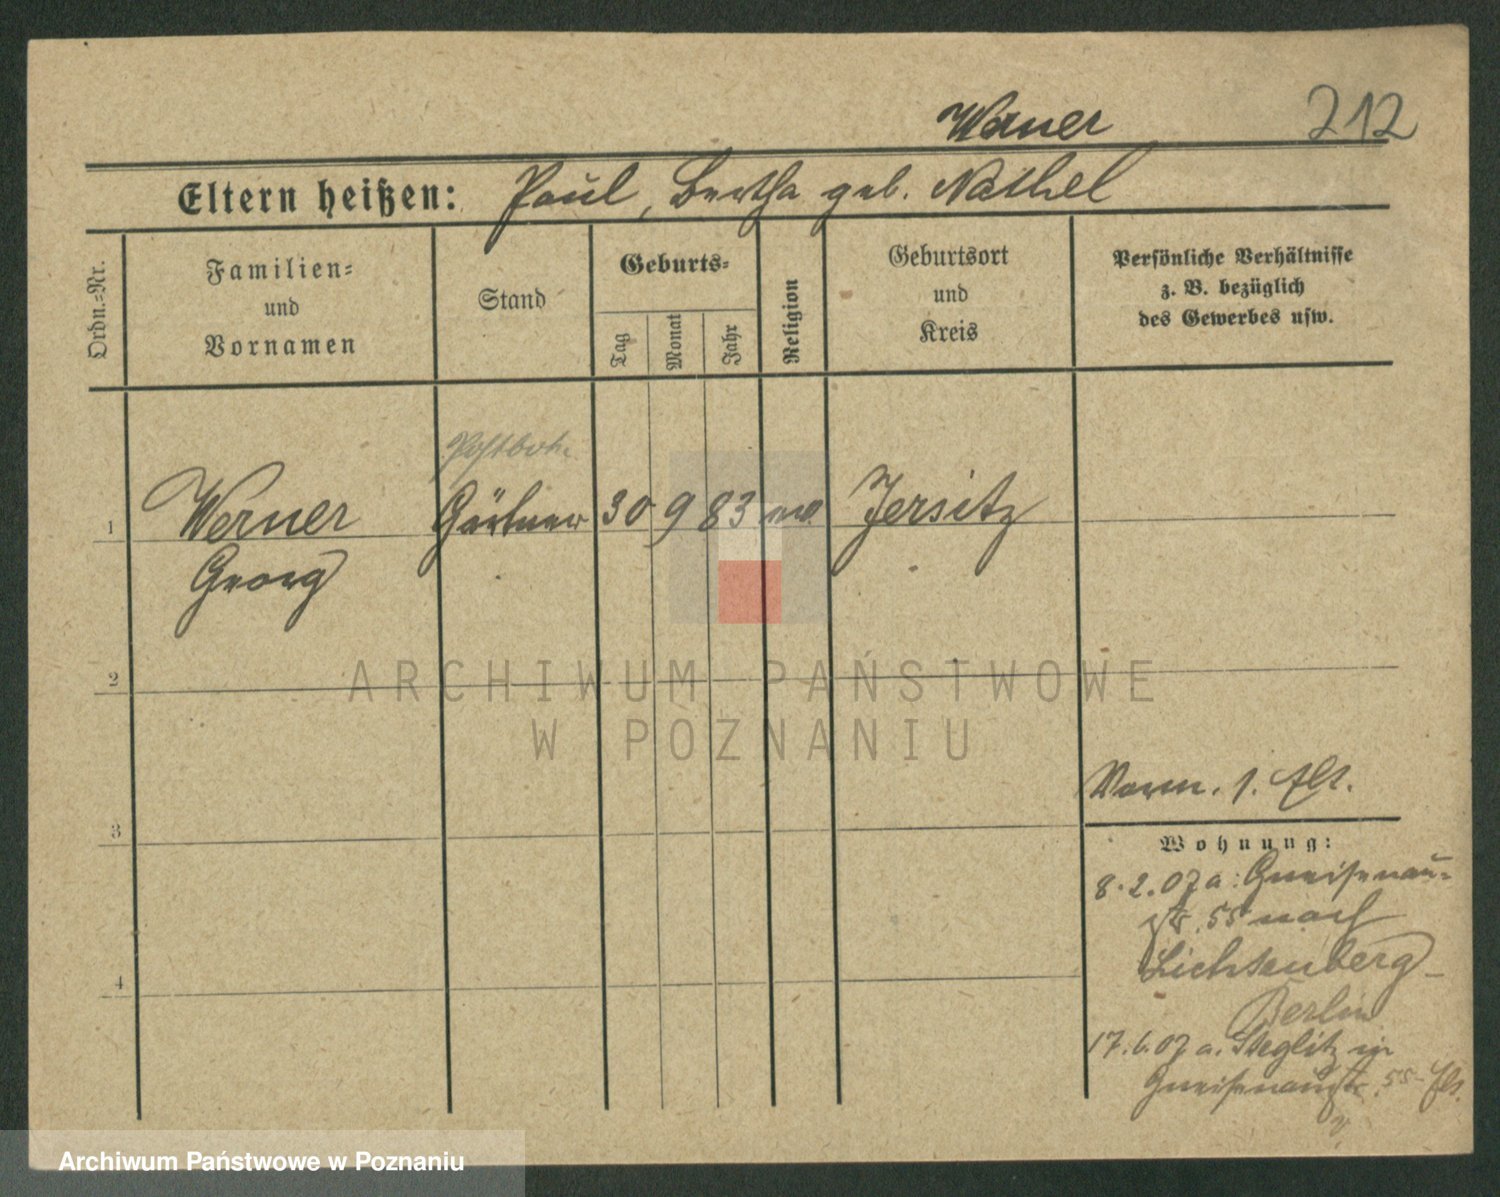 Werner 212
Eltern heißen: Paul, Bertha geb. Nathel
Ordn.=Nr.
Familien=
und
Vornamen
Stand
Geburts=
Tag
Monat
Jahr
Religion
Geburtsort
und
Kreis
Persönliche Verhältnisse
z. B. bezüglich
des Gewerbes usw.
Postbote
1 Werner Gärtner 30 9 83 ev. Jersitz
Georg
2
ARCHIWUM PAŃSTWOWE
W POZNANIU
Vorm. 1.
3
Wohnung:
8.2.07 a: Gneisenau=
str. 55 nach
4
Lichtenberg-
Berlin
17.6.07 a. Steglitz in
Gneisenaustr. 55
Archiwum Państwowe w Poznaniu